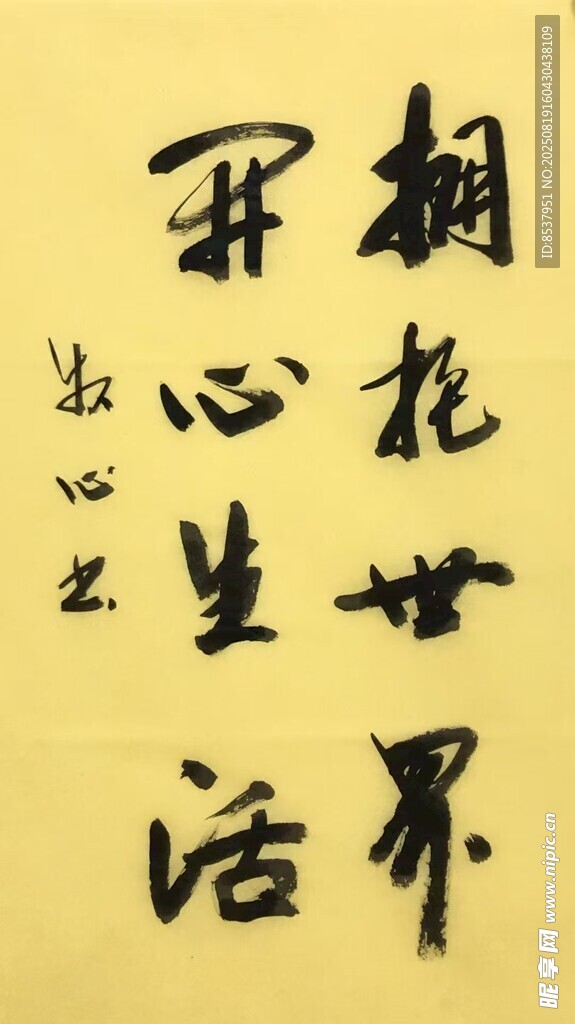 拥抱世界
開心生活
牧心书
ID:8537951 NO:20250819160430438109
昵享网 www.nipic.cn